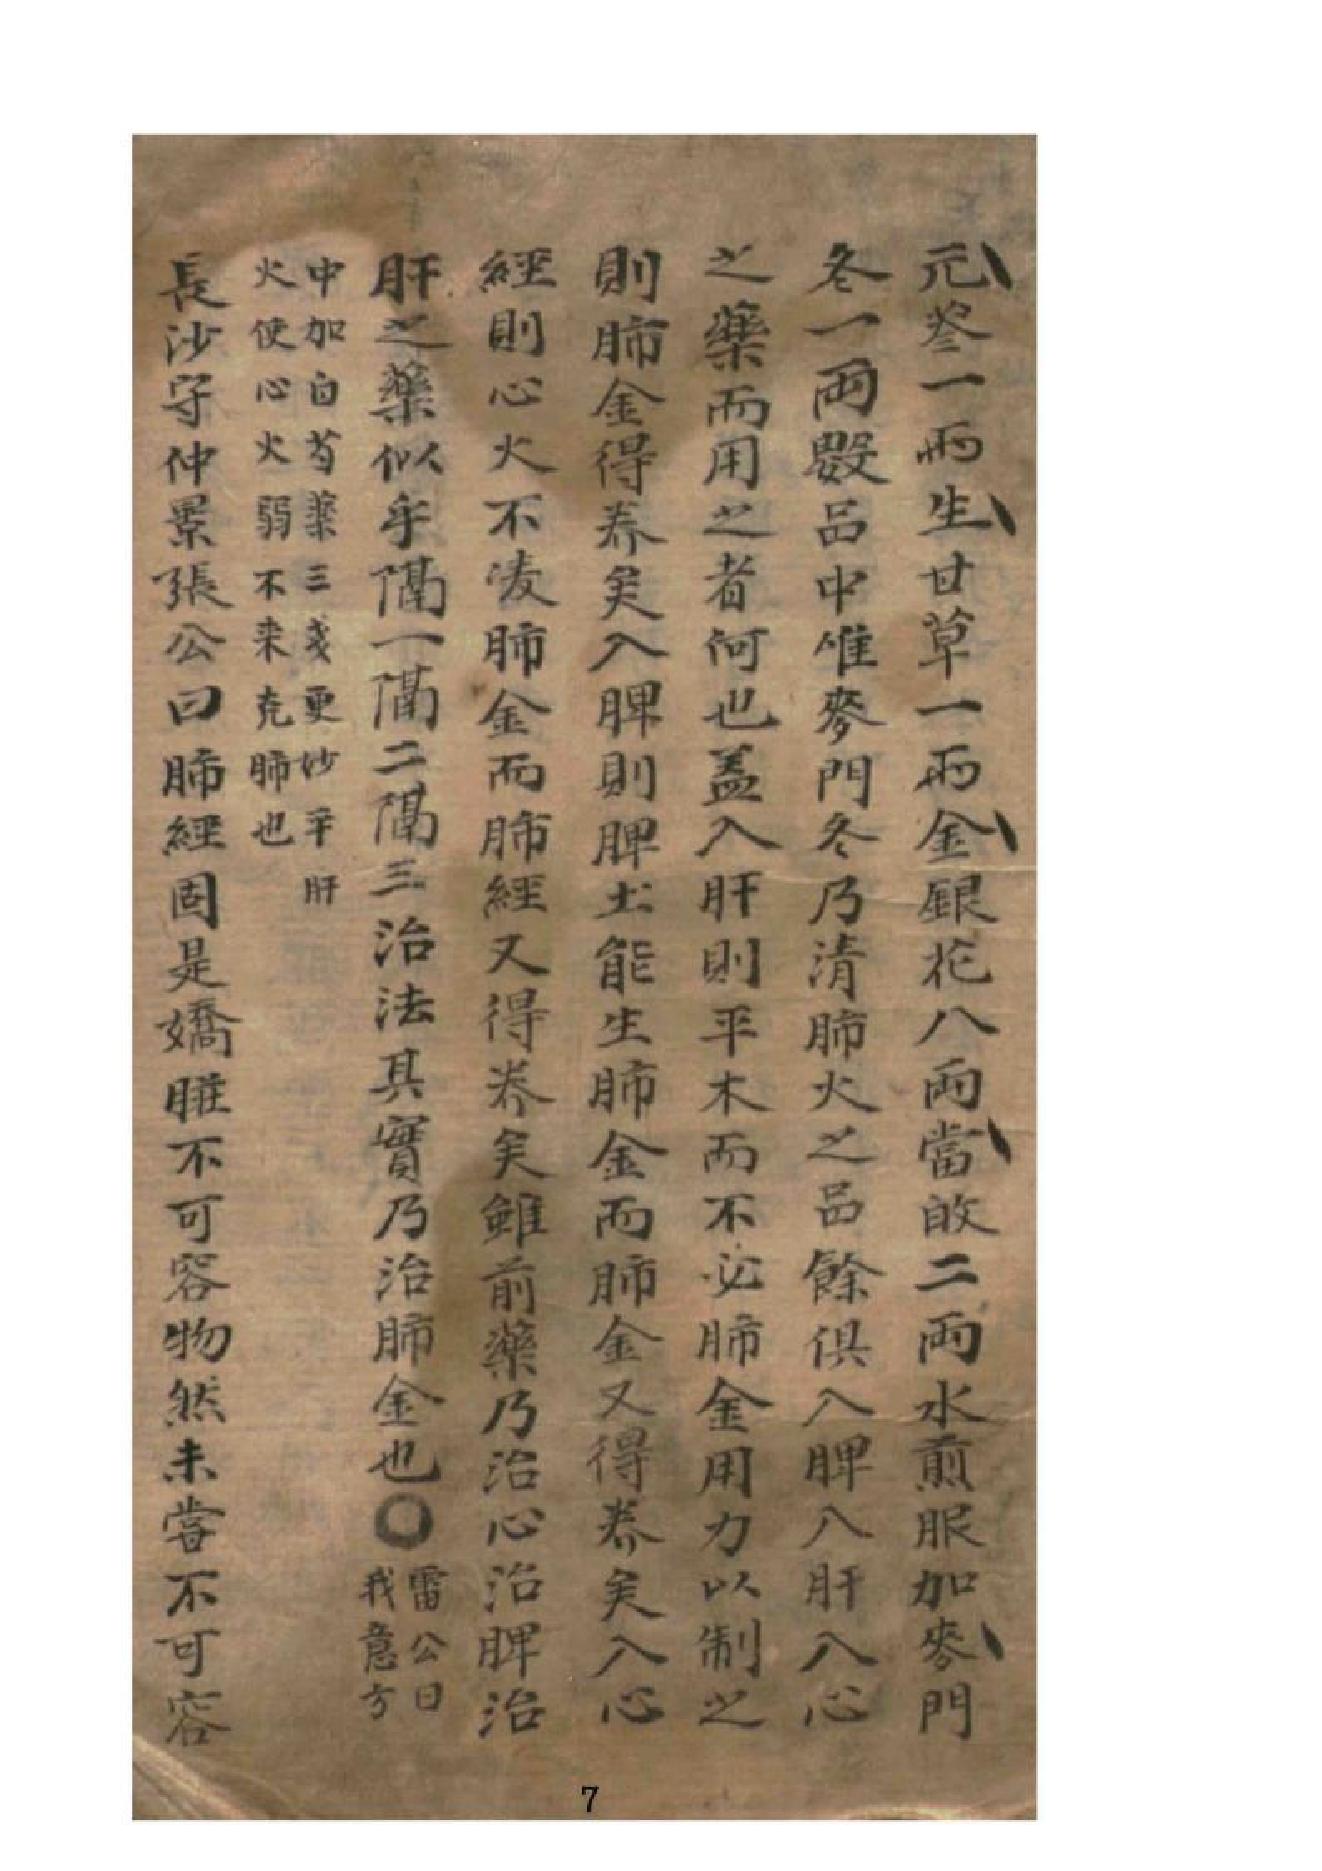 元參一兩生甘草一兩金銀花八兩當故二兩水煎服加麥門
冬一兩數品中惟麥門冬乃清肺火之品餘俱入脾入肝入心
之藥而用之者何也蓋入肝則平木而不必肺金用力以制之
則肺金得养矣入脾則脾土能生肺金而肺金又得养矣入心
經則心火不凌肺金而肺經又得养矣雖前藥乃治心治脾治
肝之藥似乎隔一隔二隔三治法其實乃治肺金也〇雷公曰我意方
中加白芍藥三戔更妙平肝
火使心火弱不来克肺也
長沙守仲景張公曰肺經固是嬌脏不可容物然未嘗不可容
7